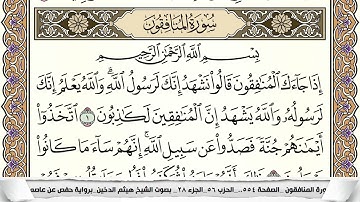 سُورَةُ المُنَافِقُونَ
بِسْمِ اللَّهِ الرَّحْمَٰنِ الرَّحِيمِ
إِذَا جَاءَكَ الْمُنَافِقُونَ قَالُوا نَشْهَدُ إِنَّكَ لَرَسُولُ اللَّهِ ۗ وَاللَّهُ يَعْلَمُ إِنَّكَ
لَرَسُولُهُ وَاللَّهُ يَشْهَدُ إِنَّ الْمُنَافِقِينَ لَكَاذِبُونَ ١ اتَّخَذُوا
أَيْمَانَهُمْ جُنَّةً فَصَدُّوا عَن سَبِيلِ اللَّهِ ۚ إِنَّهُمْ سَاءَ مَا كَانُوا
ورة المنافقون _الصفحة ٥٥٤_ الحزب ٥٦_ الجزء ٢٨_ بصوت الشيخ هيثم الدخين_ برواية حفص عن عاصم